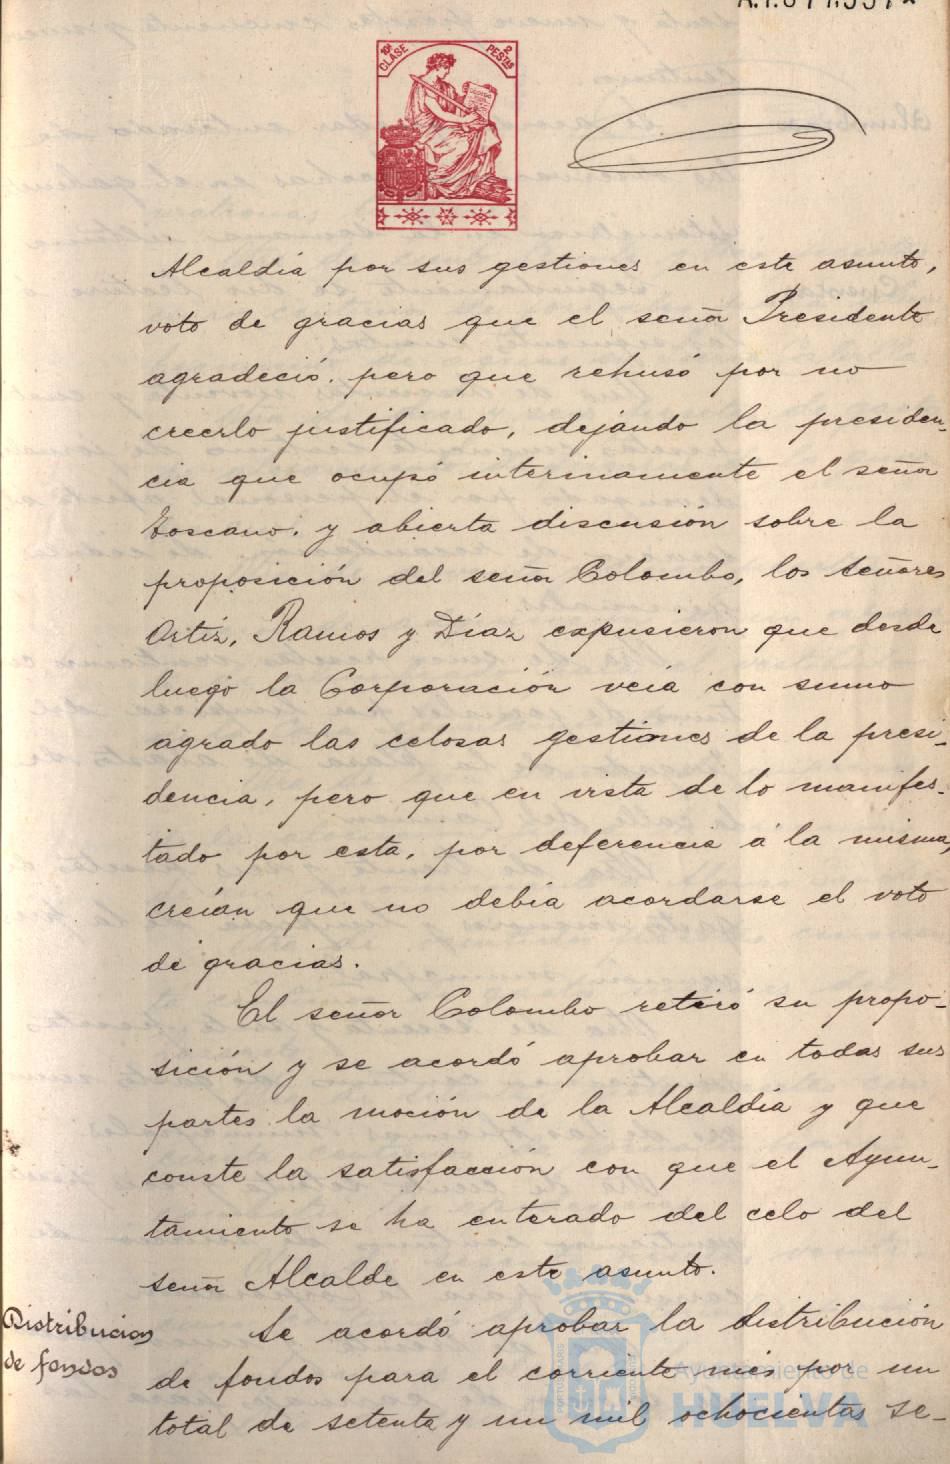 10ª CLASE 2 PESTAS
Alcaldía por sus gestiones en este asunto,
voto de gracias que el señor Presidente
agradeció, pero que rehusó por no
creerlo justificado, dejando la presiden-
cia que ocupó interinamente el señor
Toscano, y abierta discusión sobre la
proposición del señor Colombo, los señores
Ortiz, Ramos y Díaz expusieron que desde
luego la Corporación veía con sumo
agrado las celosas gestiones de la presi-
dencia, pero que en vista de lo manifes-
tado por esta, por deferencia á la misma,
creían que no debía acordarse el voto
de gracias.
El señor Colombo retiró su propo-
sición y se acordó aprobar en todas sus
partes la moción de la Alcaldía y que
conste la satisfacción con que el Ayun-
tamiento se ha enterado del celo del
señor Alcalde en este asunto.
Distribucion
de fondos
Se acordó aprobar la distribución
de fondos para el corriente mes por un
total de setenta y un mil ochocientas se-
Ayuntamiento de
HUELVA